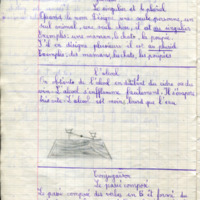 Le singulier et le pluriel
Quand le nom désigne une seule personne, un
seul animal, une seule chose, il est au singulier
Exemples: une maman, le chat, la poupée.
S'il en désigne plusieurs il est au pluriel.
Exemples: des mamans, les chats, les poupées
L'alcool
On obtient de l'alcool en distillant du cidre ou du
vin. L'alcool s'enflamme facilement. Il s'évapore
très vite. L'alcool est moins lourd que l'eau.
Conjugaison
Le passé composé
Le passé composé des verbes en er est formé du